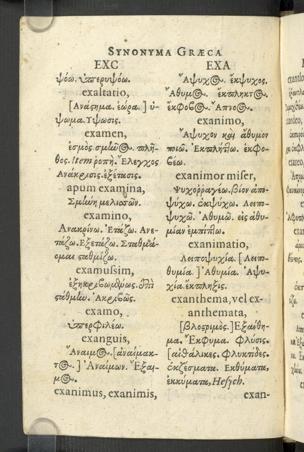 SYNONYMA GRÆCA
EXC
ψόω. ὑπερυψόω.
exaltatio,
[Ανάςημα. ἐώρα.] ὕ-
ψωμα. Υψωσις.
examen,
ἑσμὸς σμῆν@. πλῆ-
θος. Item ροπή. Ελεγχος
Ανάκρισις. ἐξέτασις.
apum examina,
Σμήνη μελιοσῶν.
examino,
Ανακρίνω. Ἐτάζω. Ανε-
τάζω. Ἐξετάζω. Σταθμιά-
ομαι σταθμίζω.
examussim,
ἐξηκριβωμένως.
σταθμίω. Ἀκριβῶς.
examo,
ὑπερφιλέω.
exanguis,
Ἄναιμ@. [ἀναίμακ-
τ@.] Ἀναίμων. Ἔξαι-
μ@.
exanimus, exanimis,
EXA
Ἄψυχ@. ἔκψυχος.
Ἄθυμ@. ἔκπληκτ@.
ἔκφοβ@. Ἄπνο@.
exanimo,
Ἄψυχον ἢ ἄθυμον
ποιῶ. Ἐκπλήττω. ἐκφο-
βέω.
exanimor miser,
Ψυχορραγέω. βίον ἀπο-
ψύχω. ἐκψύχω. Λειπ-
ψυχῶ. Ἀθυμῶ. εἰς ἀθυ-
μίαν ἐμπίπτω.
exanimatio,
Λειποψυχία. [Λειπ-
θυμία.] Ἀθυμία. Ἀψυ-
χία ἔκπληξις.
exanthema, vel ex-
anthemata,
[Βλοςριμός.] Ἐξάνθη-
μα. Ἔκφυμα. Φλύσις.
[αἰθάλικες. Φλυκτίδες.
ἐκζέσματα. Ἐκθύματα,
ἐκκύματα, Hesych.
exan-